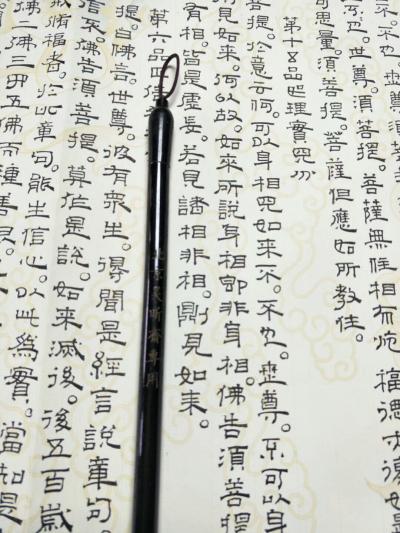 不。不也。世尊須
不也。世尊。須菩提。菩薩無住相布施。福德亦復如是
可思量。須菩提。菩薩但應如所教住。
理實見分
菩提。於意云何。可以身相見如來不。不也。世尊。不可以身
見如來。何以故。如來所說身相即非身相。佛告須菩提
有相。皆是虛妄。若見諸相非相。則見如來。
第六品
提。白佛言。世尊。頗有眾生。得聞是經言說章句。
信不。佛告須菩提。莫作是說。如來滅後。後五百歲
戒脩福者。於此章句。能生信心。以此為實。當知是
佛二佛三四五佛而種善根。